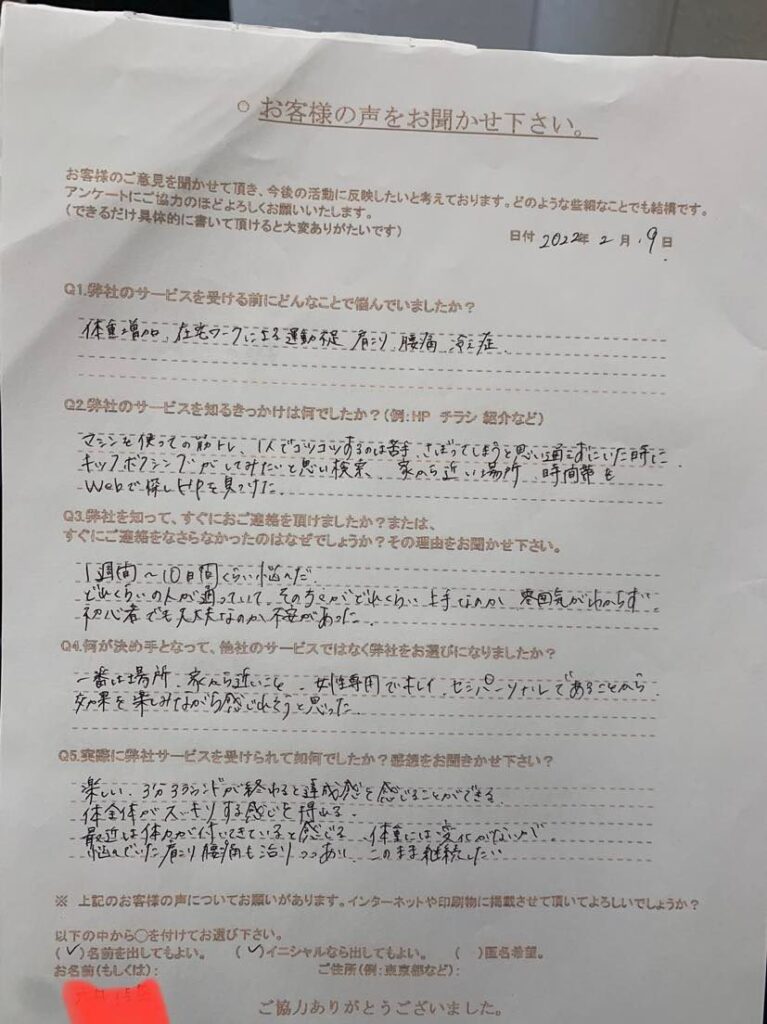 ○ お客様の声をお聞かせ下さい。
お客様のご意見を聞かせて頂き、今後の活動に反映したいと考えております。どのような些細なことでも結構です。
アンケートにご協力のほどよろしくお願いいたします。
(できるだけ具体的に書いて頂けると大変ありがたいです)
日付 2022年 2月 19日
Q1.弊社のサービスを受ける前にどんなことで悩んでいましたか？
体重増加、在宅ワークによる運動不足 肩こり、腰痛、冷え症
Q2.弊社のサービスを知るきっかけは何でしたか？(例:HP チラシ 紹介など)
マシンを使っての筋トレ、1人でコツコツするのは苦手、さぼってしまうと思い通えずにいた時に
キックボクシングがしてみたいと思い検索、家から近い場所、時間帯も
Webで探しHPを見つけた。
Q3.弊社を知って、すぐにおご連絡を頂けましたか？または、
すぐにご連絡をなさらなかったのはなぜでしょうか？その理由をお聞かせ下さい。
1週間～10日間くらい悩んだ。
どれくらいの人が通っていて、その方々がどれくらい上手なのか 雰囲気がわからず
初心者でも大丈夫なのか不安があった。
Q4.何が決め手となって、他社のサービスではなく弊社をお選びになりましたか？
一番は場所、家から近いこと、女性専用でキレイ、セミパーソナルであることから
効果を楽しみながら感じれそうと思った。
Q5.実際に弊社サービスを受けられて如何でしたか？感想をお聞きかせ下さい？
楽しい、3分3ラウンドが終わると達成感を感じることができる。
体全体がスッキリする感じを得れる。
最近は体力が付いてきていると感じる、体重には変化がないが、
悩んでいた肩こり腰痛も治りつつあり、このまま継続したい
※ 上記のお客様の声についてお願いがあります。インターネットや印刷物に掲載させて頂いてよろしいでしょうか？
以下の中から○を付けてお選び下さい。
(✓)名前を出してもよい。 (✓)イニシャルなら出してもよい。 ( )匿名希望。
お名前(もしくは): ご住所(例:東京都など):
ご協力ありがとうございました。